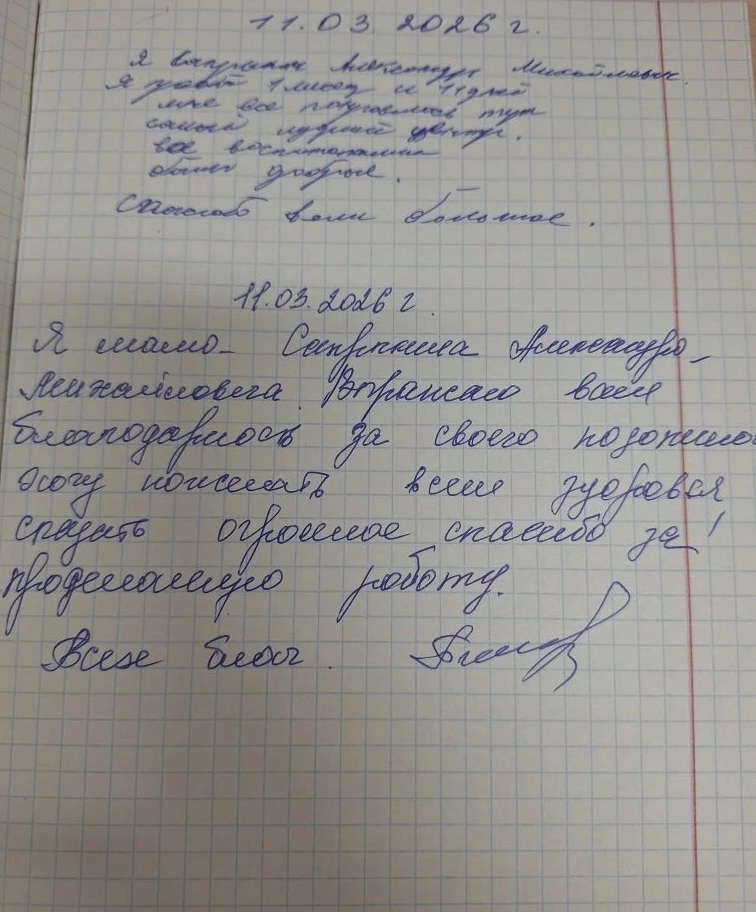 11.03.2026 г.
Я Сапрыкин Александр Михайлович.
Я 1 месяц и 11 дней
мне все понравилось тут
самый лудший центр.
все воспитатели
были добрые.
Спасибо вам большое.
11.03.2026 г.
Я мама Сапрыкина Александра
Михайловича. Выражаю вам
благодарность за своего
Хочу пожелать всем здоровья
сказать огромное спасибо за!
проделанную работу.
Всех благ.